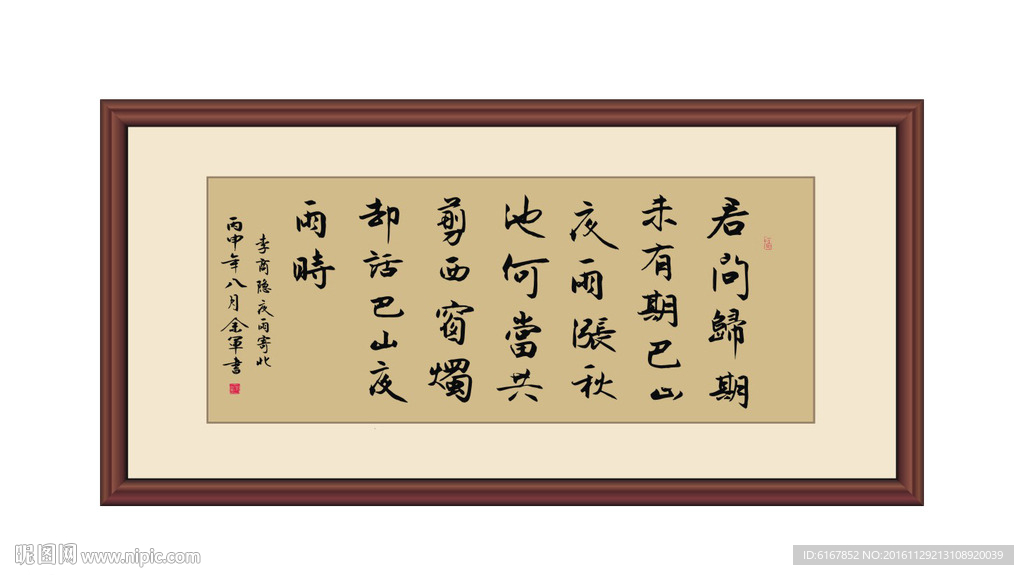 君問歸期
未有期巴山
夜雨漲秋
池何當共
剪西窗燭
却話巴山夜
雨時
李商隐夜雨寄北
丙申年八月余軍书
昵图网 www.nipic.com
ID:6167852 NO:20161129213108920039